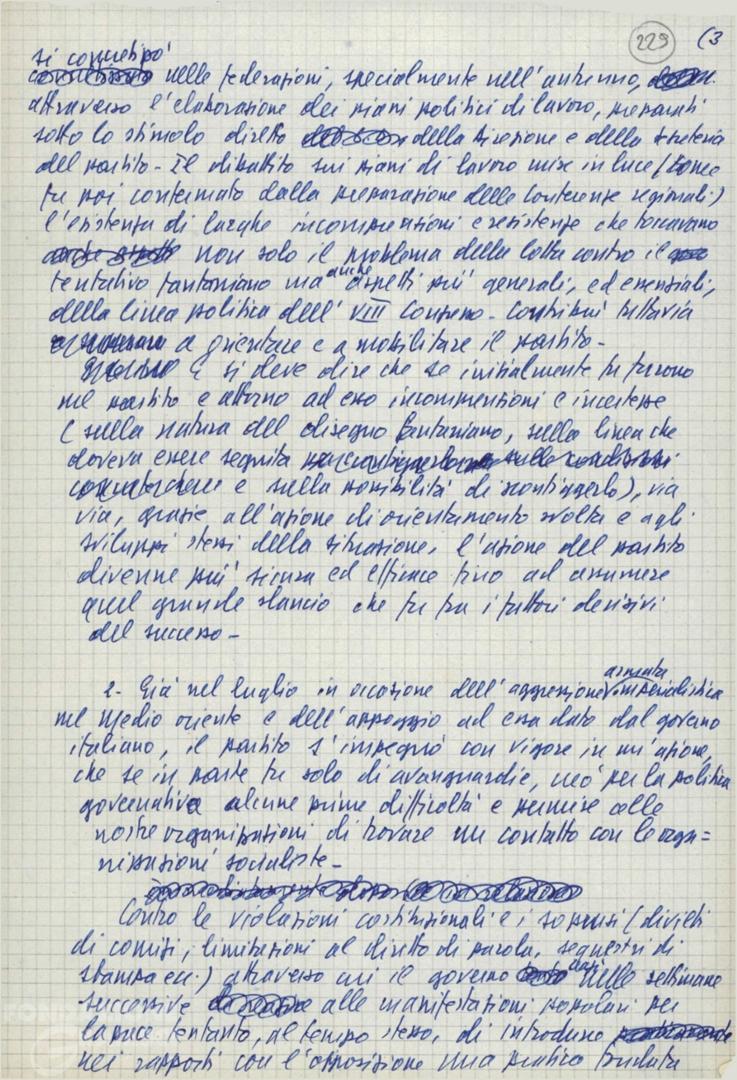 229 (3
si concretizzò
nelle federazioni, specialmente nell'autunno,
attraverso l'elaborazione dei piani politici di lavoro, preparati
sotto lo stimolo diretto della direzione e della segreteria
del partito - Il dibattito sui piani di lavoro mise in luce (come
fu poi confermato dalla preparazione delle conferenze regionali)
l'esistenza di larghe incomprensioni e resistenze che toccavano
non solo il problema della lotta contro il
tentativo fanfaniano ma anche aspetti più generali, ed essenziali,
della linea politica dell'VIII congresso - Contribuì tuttavia
a orientare e a mobilitare il partito -
E si deve dire che se inizialmente vi furono
nel partito e attorno ad esso incomprensioni e incertezze
(sulla natura del disegno fanfaniano, sulla linea che
doveva essere seguita
e sulla possibilità di sconfiggerlo), via
via, grazie all'azione di orientamento svolta e agli
sviluppi stessi della situazione, l'azione del partito
divenne più sicura ed efficace fino ad assumere
quel grande slancio che fu tra i fattori decisivi
del successo -
2- Già nel luglio in occasione dell'aggressione armata imperialistica
nel Medio oriente e dell'appoggio ad essa dato dal governo
italiano, il partito s'impegnò con vigore in un'azione,
che se in parte fu solo di avanguardie, creò per la politica
governativa alcune prime difficoltà e permise alle
nostre organizzazioni di trovare un contatto con le orga=
nizzazioni socialiste -
Contro le violazioni costituzionali e i soprusi (divieti
di comizi, limitazioni al diritto di parola, sequestri di
stampa ecc.) attraverso cui il governo nelle settimane
successive alle manifestazioni popolari per
la pace tentanto, al tempo stesso, di introdurre
nei rapporti con l'opposizione una pratica